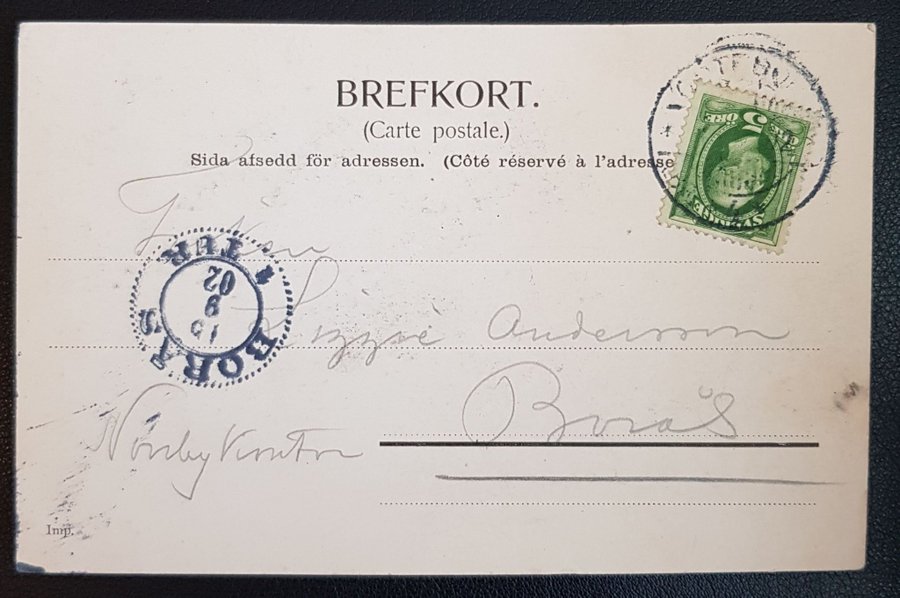 BREFKORT.
(Carte postale.)
Sida afsedd för adressen. (Côté réservé à l'adresse
5 ÖRE
SVERIGE
BORÅS
TUR
15
9
02
Fröken
Lizzie Andersson
Borås
Norrby Kontor
Imp.